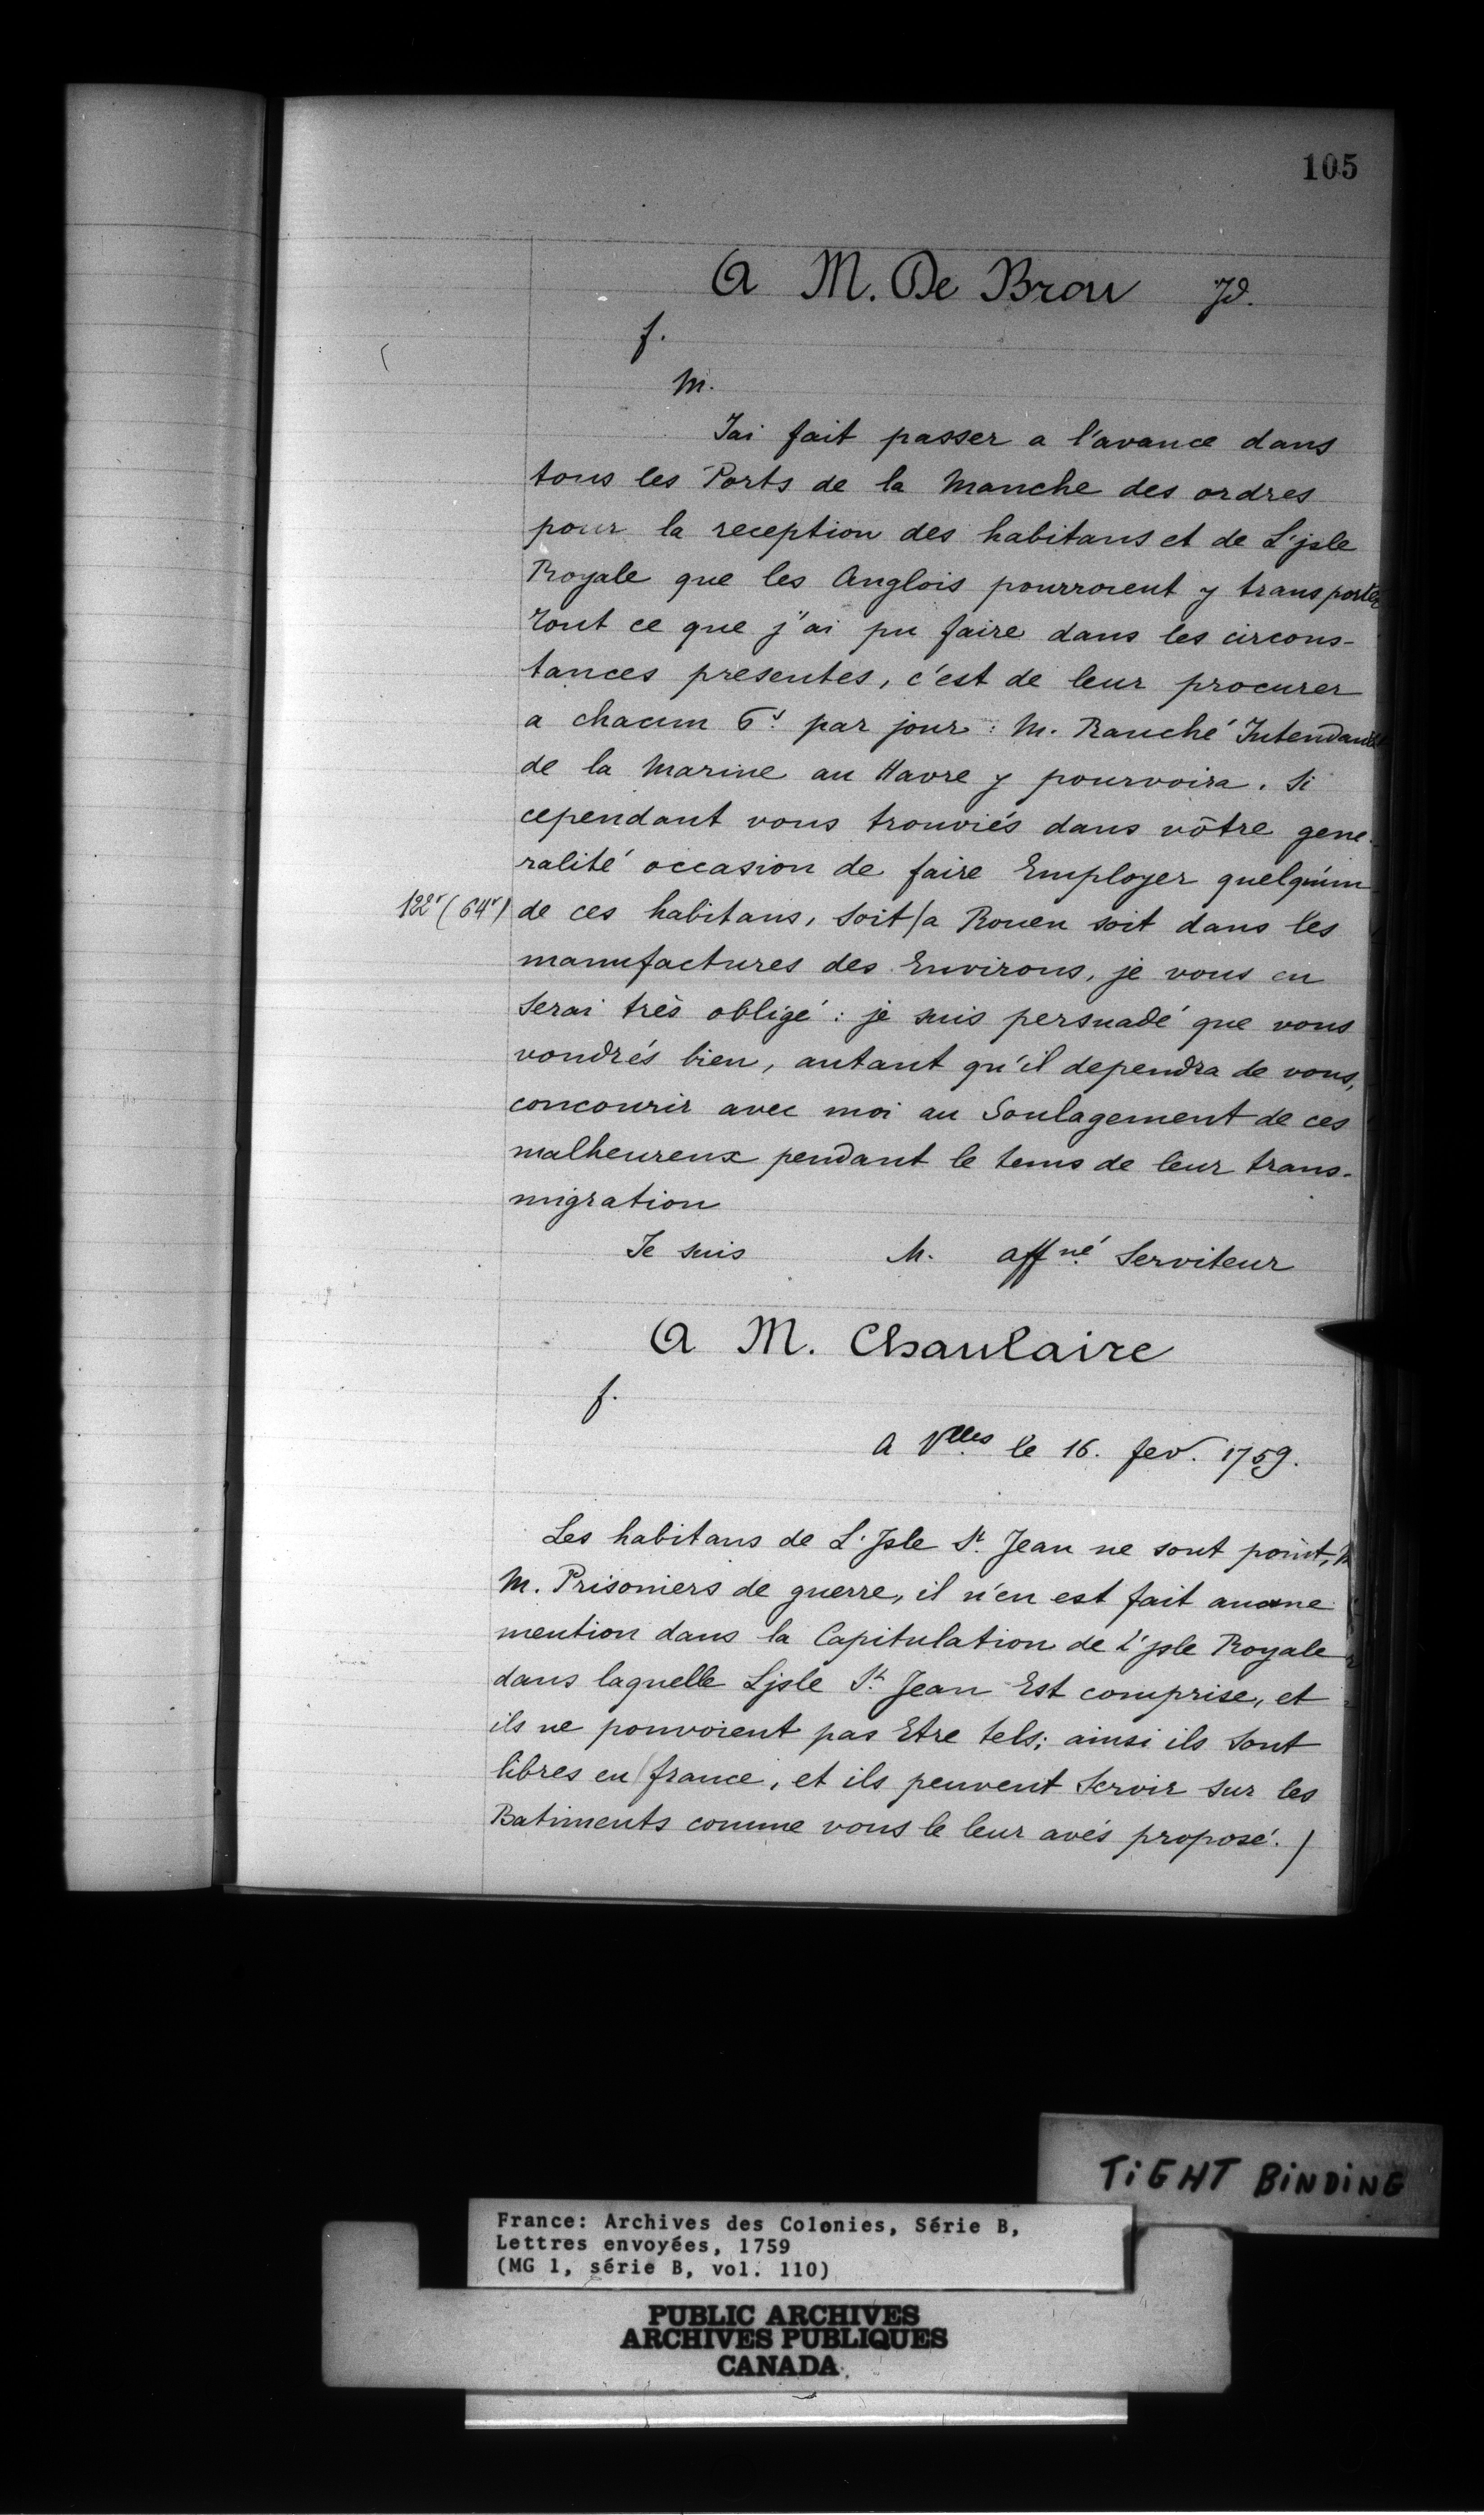 105
A M. De Brou Jd.
f.
M.
J'ai fait passer a l'avance dans
tous les Ports de la Manche des ordres
pour la reception des habitans et de L'jsle
Royale que les Anglois pourroient y transporter
tout ce que j'ai pu faire dans les circons-
tances presentes, c'est de leur procurer
a chacun 6s. par jour : M. Ranché Intendant
de la Marine au Havre y pourvoira. Si
cependant vous trouviés dans vôtre gene-
ralité occasion de faire Employer quelqu'un
122r (64r) de ces habitans, soit/a Rouen soit dans les
manufactures des Environs, je vous en
Serai très obligé : je suis persuadé que vous
voudrés bien, autant qu'il dependra de vous,
concourir avec moi au Soulagement de ces
malheureux pendant le tems de leur trans-
migration
Je suis M. affné Serviteur
A M. Chaulaire
f.
A Vlles le 16. fev. 1759.
Les habitans de L'Jsle St. Jean ne sont point,
M. Prisoniers de guerre, il n'en est fait aucune
mention dans la Capitulation de L'jsle Royale
dans laquelle Ljsle St. Jean Est comprise, et
ils ne pouvoient pas Etre tels; ainsi ils Sont
libres en france, et ils peuvent Servir sur les
Batiments comme vous le leur avés proposé. /
TIGHT BINDING
France: Archives des Colonies, Série B,
Lettres envoyées, 1759
(MG 1, série B, vol. 110)
PUBLIC ARCHIVES
ARCHIVES PUBLIQUES
CANADA